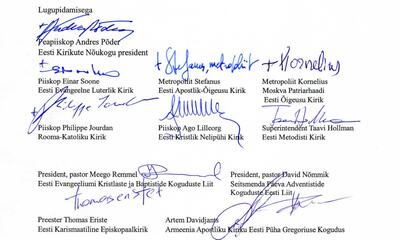 Lugupidamisega
Peapiiskop Andres Põder
Eesti Kirikute Nõukogu president
+ Stefanus, metropoliit
+ Kornelius
Piiskop Einar Soone
Eesti Evangeelne Luterlik Kirik
Metropoliit Stefanus
Eesti Apostlik-Õigeusu Kirik
Metropoliit Kornelius
Moskva Patriarhaadi
Eesti Õigeusu Kirik
+ Philippe Jourdan
Piiskop Philippe Jourdan
Rooma-Katoliku Kirik
Piiskop Ago Lilleorg
Eesti Kristlik Nelipühi Kirik
Superintendent Taavi Hollman
Eesti Metodisti Kirik
President, pastor Meego Remmel
Eesti Evangeeliumi Kristlaste ja Baptistide Koguduste Liit
President, pastor David Nõmmik
Seitsmenda Päeva Adventistide
Koguduste Eesti Liit
Preester Thomas Eriste
Eesti Karismaatiline Episkopaalkirik
Artem Davidjants
Armeenia Apostliku Kiriku Eesti Püha Gregoriuse Kogudus